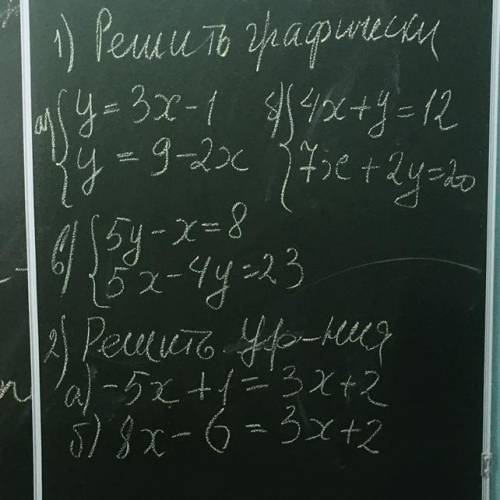 1) Решить графически
а) { y = 3x - 1
y = 9 - 2x
б) { 4x + y = 12
7x + 2y = 20
в) { 5y - x = 8
5x - 4y = 23
2) Решить ур-ния
а) -5x + 1 = 3x + 2
б) 8x - 6 = 3x + 2